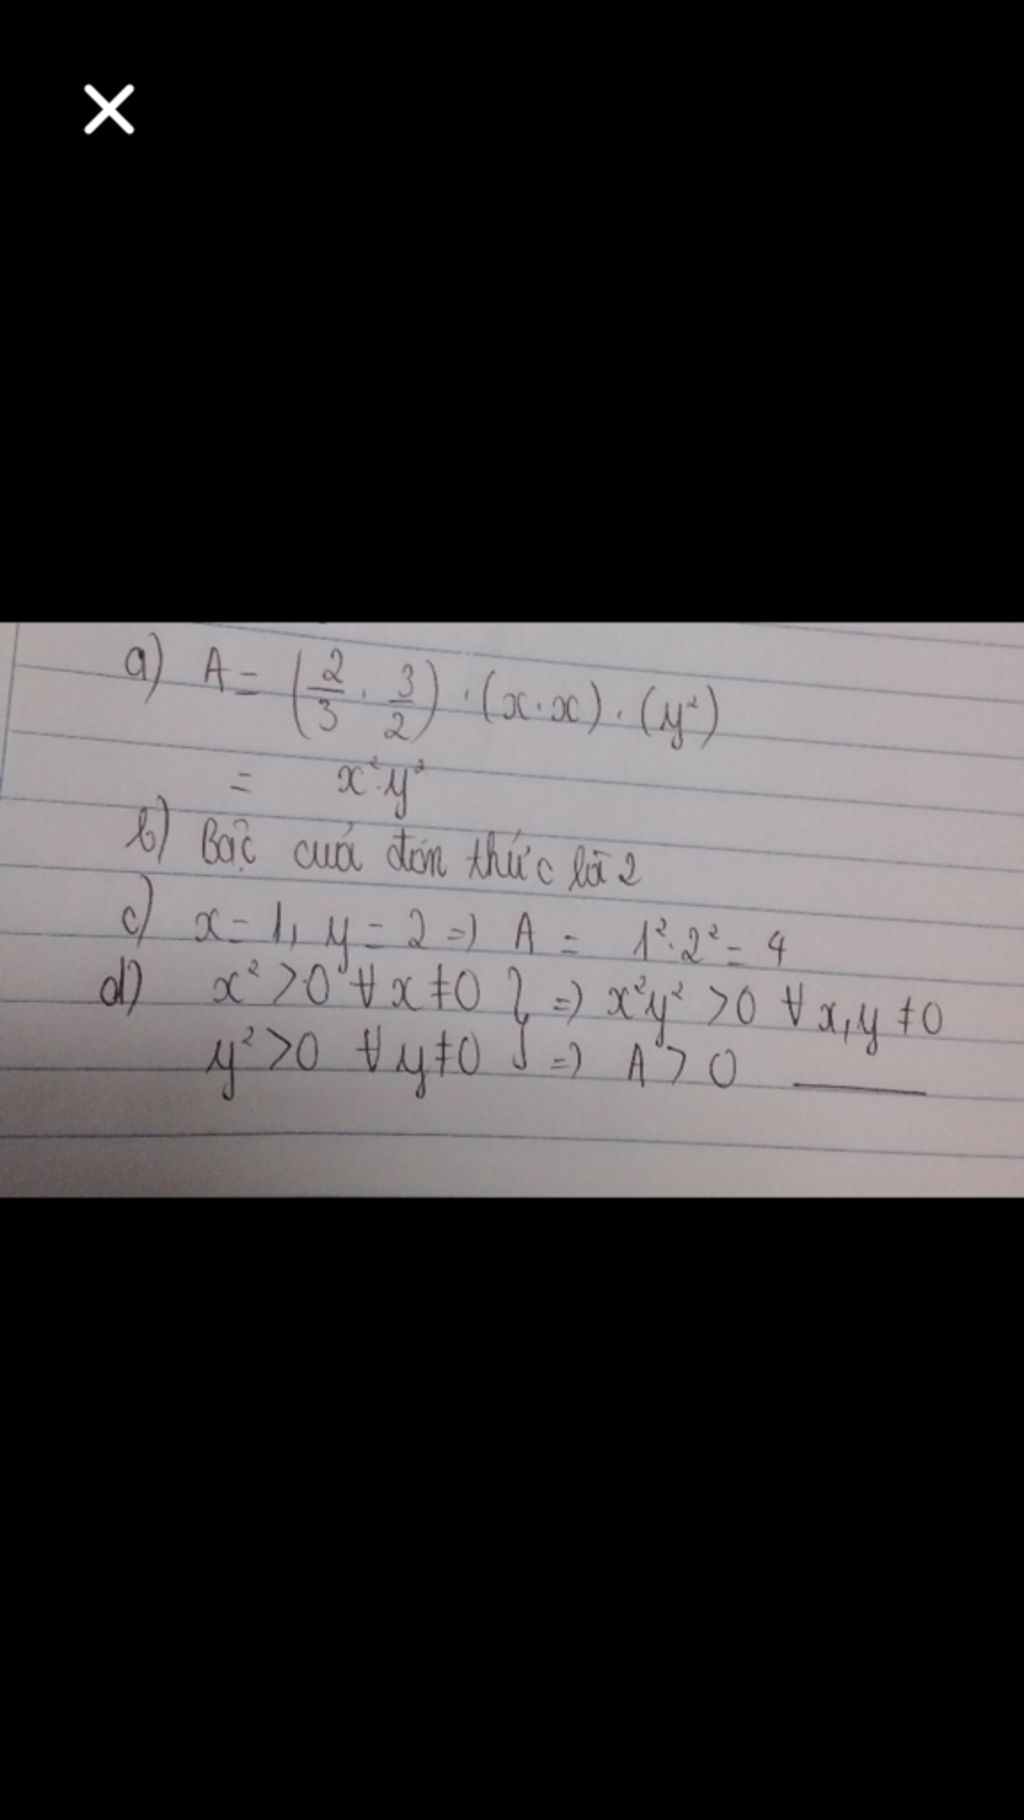 a) A = (2/3 · 3/2) · (x·x) · (y²)
= x²y²
b) Bậc của đơn thức là 2
c) x = 1, y = 2 => A = 1²·2² = 4
d) x² > 0 ∀x ≠ 0 } => x²y² > 0 ∀x,y ≠ 0
y² > 0 ∀y ≠ 0 } => A > 0